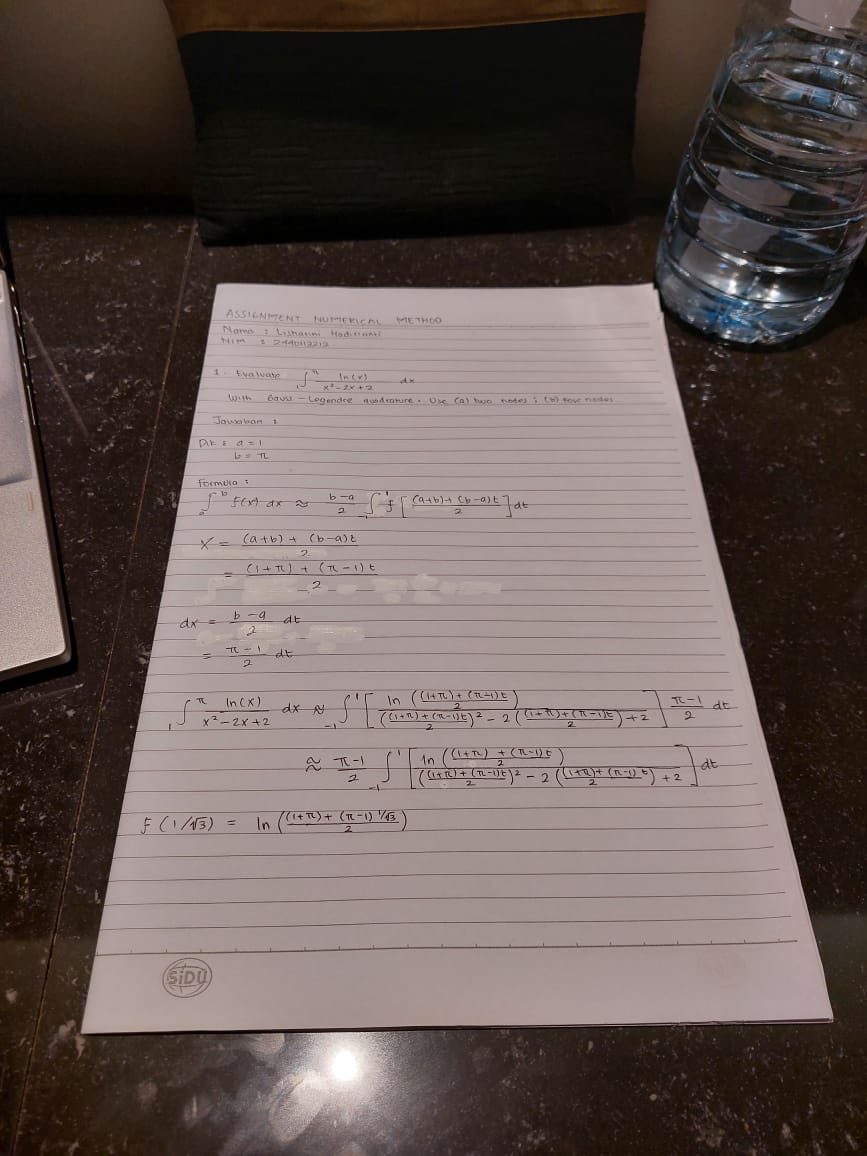 ASSIGNMENT NUMERICAL METHOD
Nama :
NIM :
1. Evaluate ∫₁^π ln(x) / (x² - 2x + 2) dx
With Gauss - Legendre quadrature. Use (a) two nodes ; (b) four nodes
Jawaban :
Dik : a = 1
b = π
Formula :
∫ₐᵇ f(x) dx ≈ (b-a)/2 ∫₋₁¹ f [ ((a+b) + (b-a)t)/2 ] dt
x = ((a+b) + (b-a)t)/2
= ((1+π) + (π-1)t)/2
dx = (b-a)/2 dt
= (π-1)/2 dt
∫₁^π ln(x) / (x² - 2x + 2) dx ≈ ∫₋₁¹ [ ln (((1+π) + (π-1)t)/2) / ((((1+π) + (π-1)t)/2)² - 2 (((1+π) + (π-1)t)/2) + 2) ] (π-1)/2 dt
≈ (π-1)/2 ∫₋₁¹ [ ln (((1+π) + (π-1)t)/2) / ((((1+π) + (π-1)t)/2)² - 2 (((1+π) + (π-1)t)/2) + 2) ] dt
f (1/√3) = ln (((1+π) + (π-1) 1/√3)/2)
SiDU